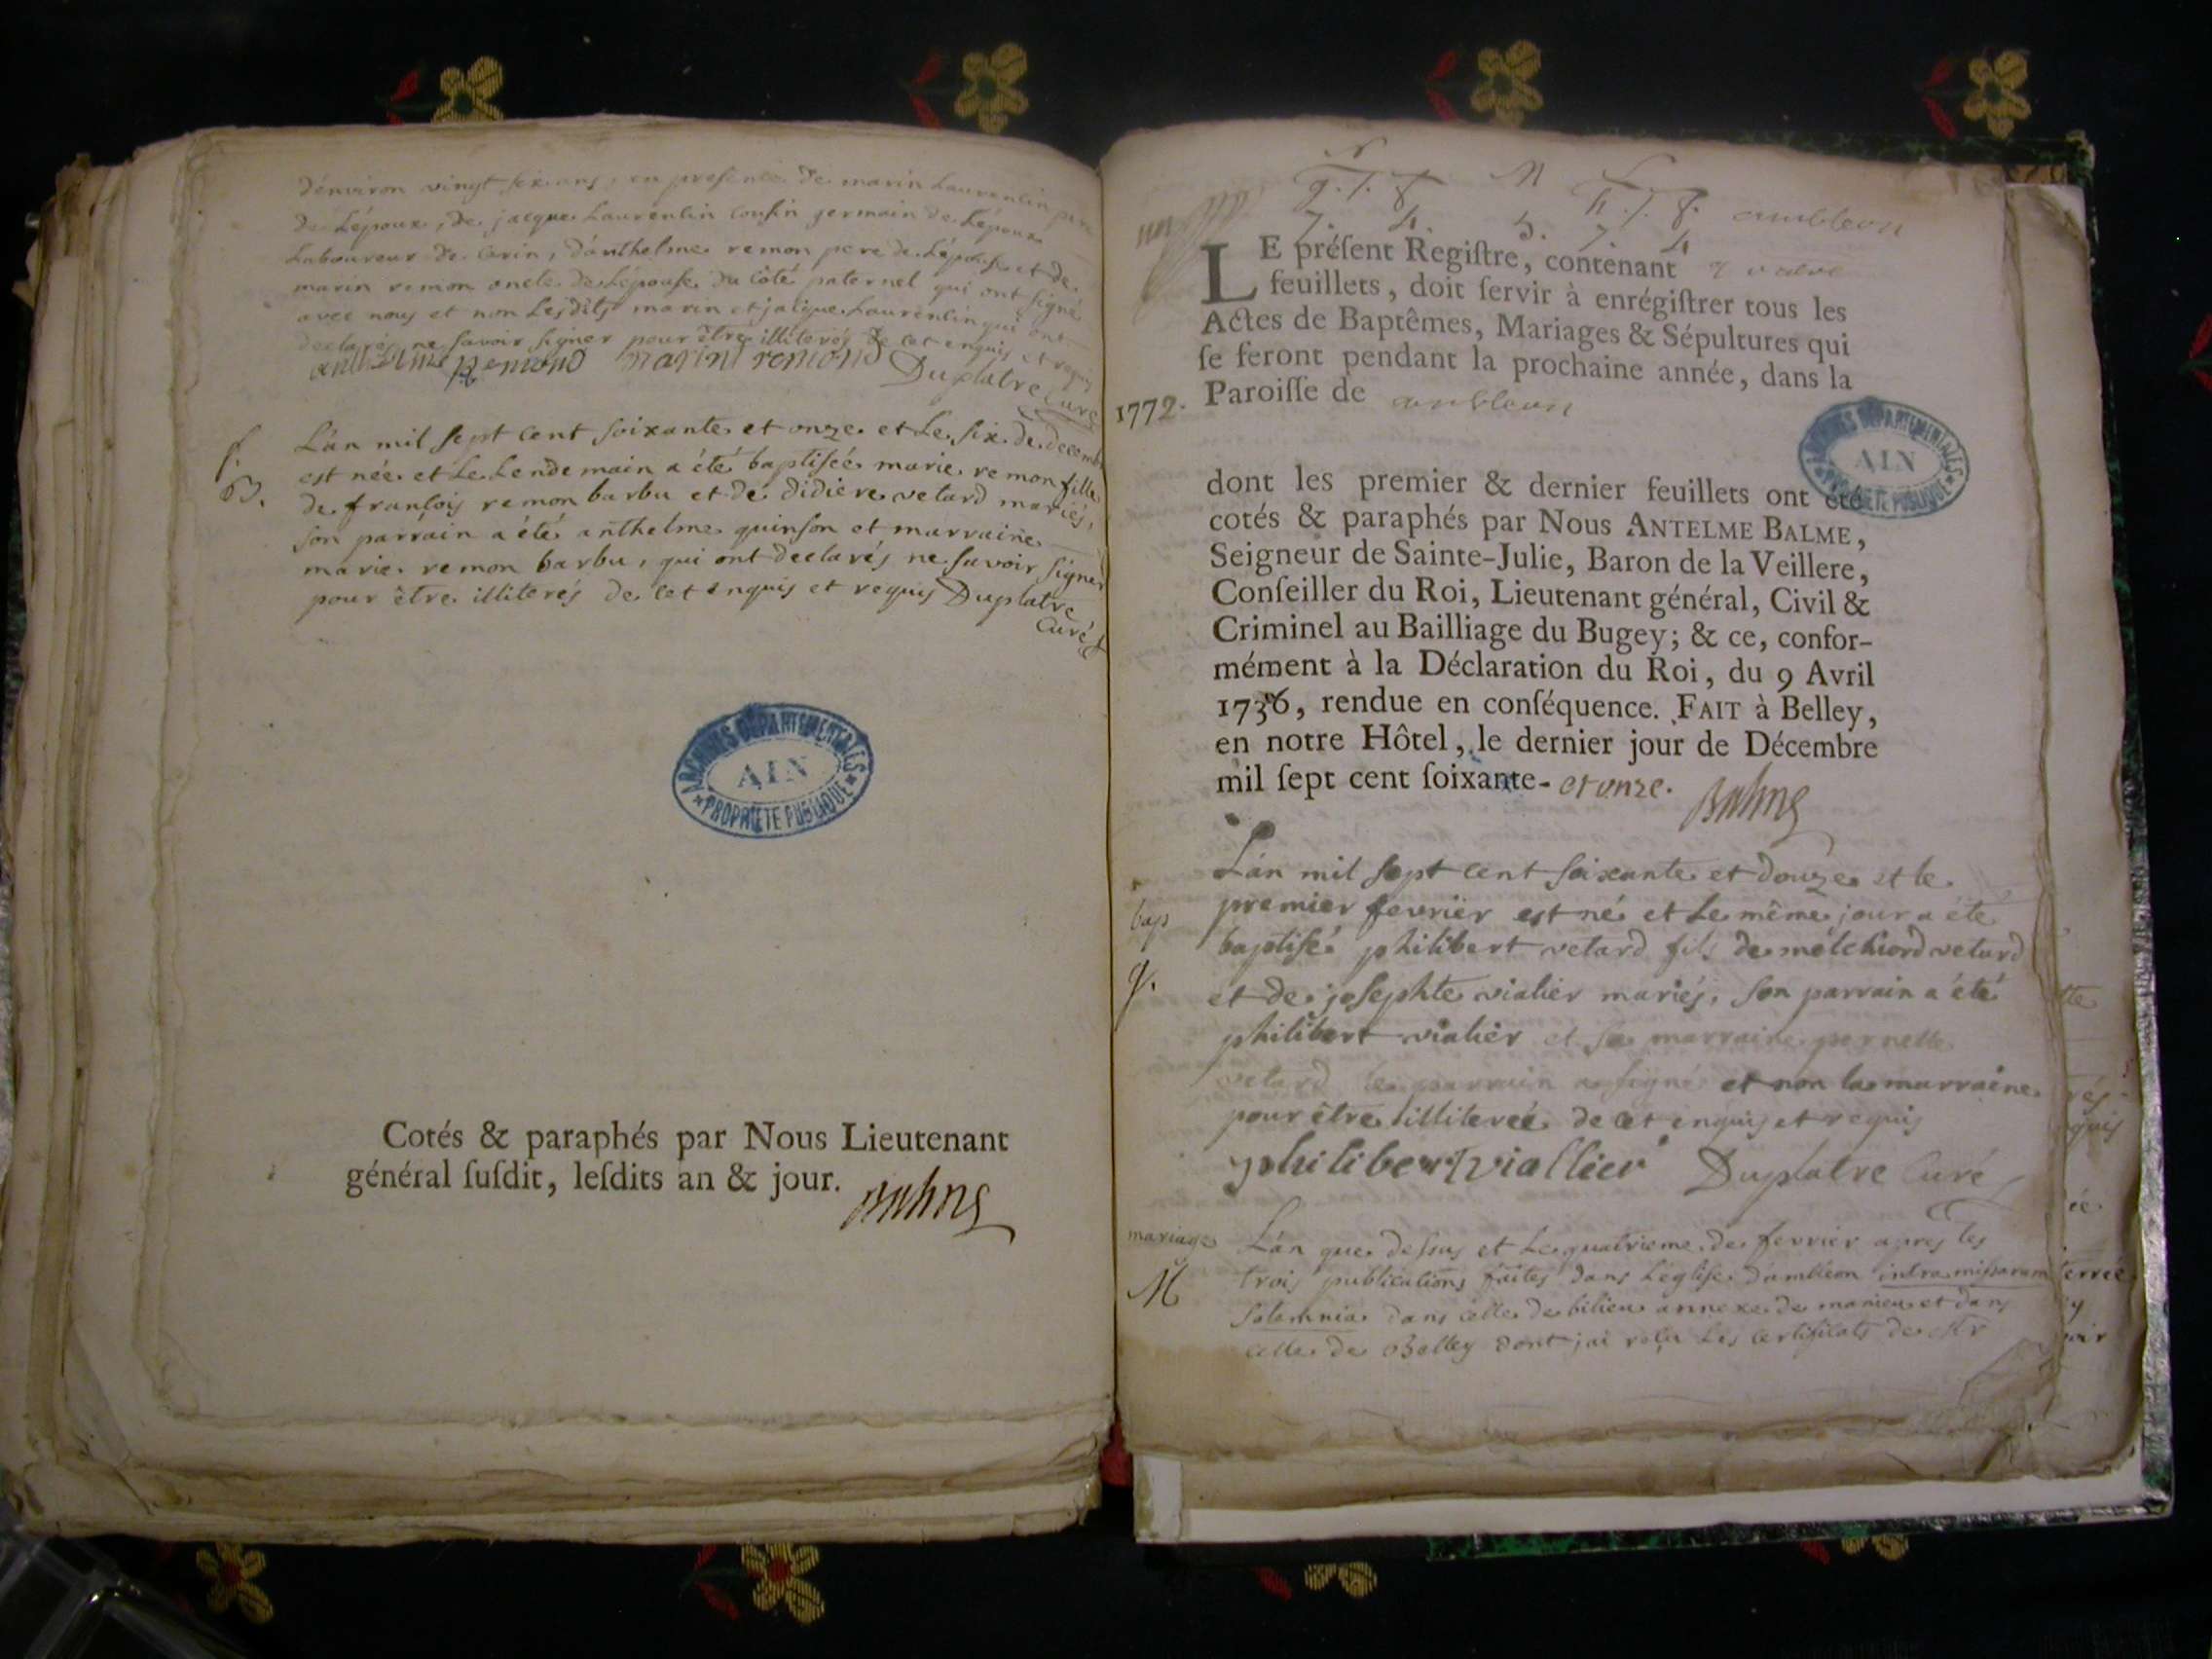 d'environ vingt six ans, en presence de marin Laurenlin pere
de Lépoux, de jacque Laurenlin cousin germain de Lépoux
Laboureur de Cerin, d'anthelme remon pere de Lépouse et de
marin remon oncle de Lépouse du côté paternel qui ont signé
avec nous et non Lesdits marin et jacque Laurenlin qui ont
declarés ne savoir signer pour être illiterés de cet enquis et requis
anthelme remond marin remond Duplatre Curé
f.
B.
L'an mil sept cent soixante et onze et Le six de decembre
est née et Le Lendemain a été baptisée marie remon fille
de françois remon barbu et de didiere vetard mariés,
son parrain a été anthelme quinson et marraine
marie remon barbu, qui ont declarés ne savoir signer
pour être illiterés de cet enquis et requis Duplatre
Curé
ARCHIVES DÉPARTEMENTALES
AIN
PROPRIÉTÉ PUBLIQUE
Cotés & paraphés par Nous Lieutenant
général ſuſdit, leſdits an & jour. Balme
N M
g. f. 8 h. f. 8.
7. 4. 3. 7. 4 ambleon
LE préſent Regiſtre, contenant quatre
feuillets, doit ſervir à enrégiſtrer tous les
Actes de Baptêmes, Mariages & Sépultures qui
ſe feront pendant la prochaine année, dans la
1772. Paroiſſe de ambleon
ARCHIVES DÉPARTEMENTALES
AIN
PROPRIÉTÉ PUBLIQUE
dont les premier & dernier feuillets ont été
cotés & paraphés par Nous ANTELME BALME,
Seigneur de Sainte-Julie, Baron de la Veillere,
Conſeiller du Roi, Lieutenant général, Civil &
Criminel au Bailliage du Bugey; & ce, confor-
mément à la Déclaration du Roi, du 9 Avril
1736, rendue en conſéquence. FAIT à Belley,
en notre Hôtel, le dernier jour de Décembre
mil ſept cent ſoixante- et onze. Balme
L'an mil sept cent soixante et douze et le
bap premier fevrier est né et Le même jour a été
baptisé philibert vetard fils de melchiord vetard
g. et de josephte vialier mariés, son parrain a été
philibert vialier et sa marraine pernette
vetard le parrain a signé et non la marraine
pour être illiterée de cet enquis et requis
philibert viallier Duplatre Curé
mariage L'an que dessus et Le quatrieme de fevrier apres les
M trois publications faites dans L'église d'ambleon intra missarum
solemnia dans celle de bilieu annexe de manieu et dans
celle de Belley dont j'ai reçu Les certificats de Mr